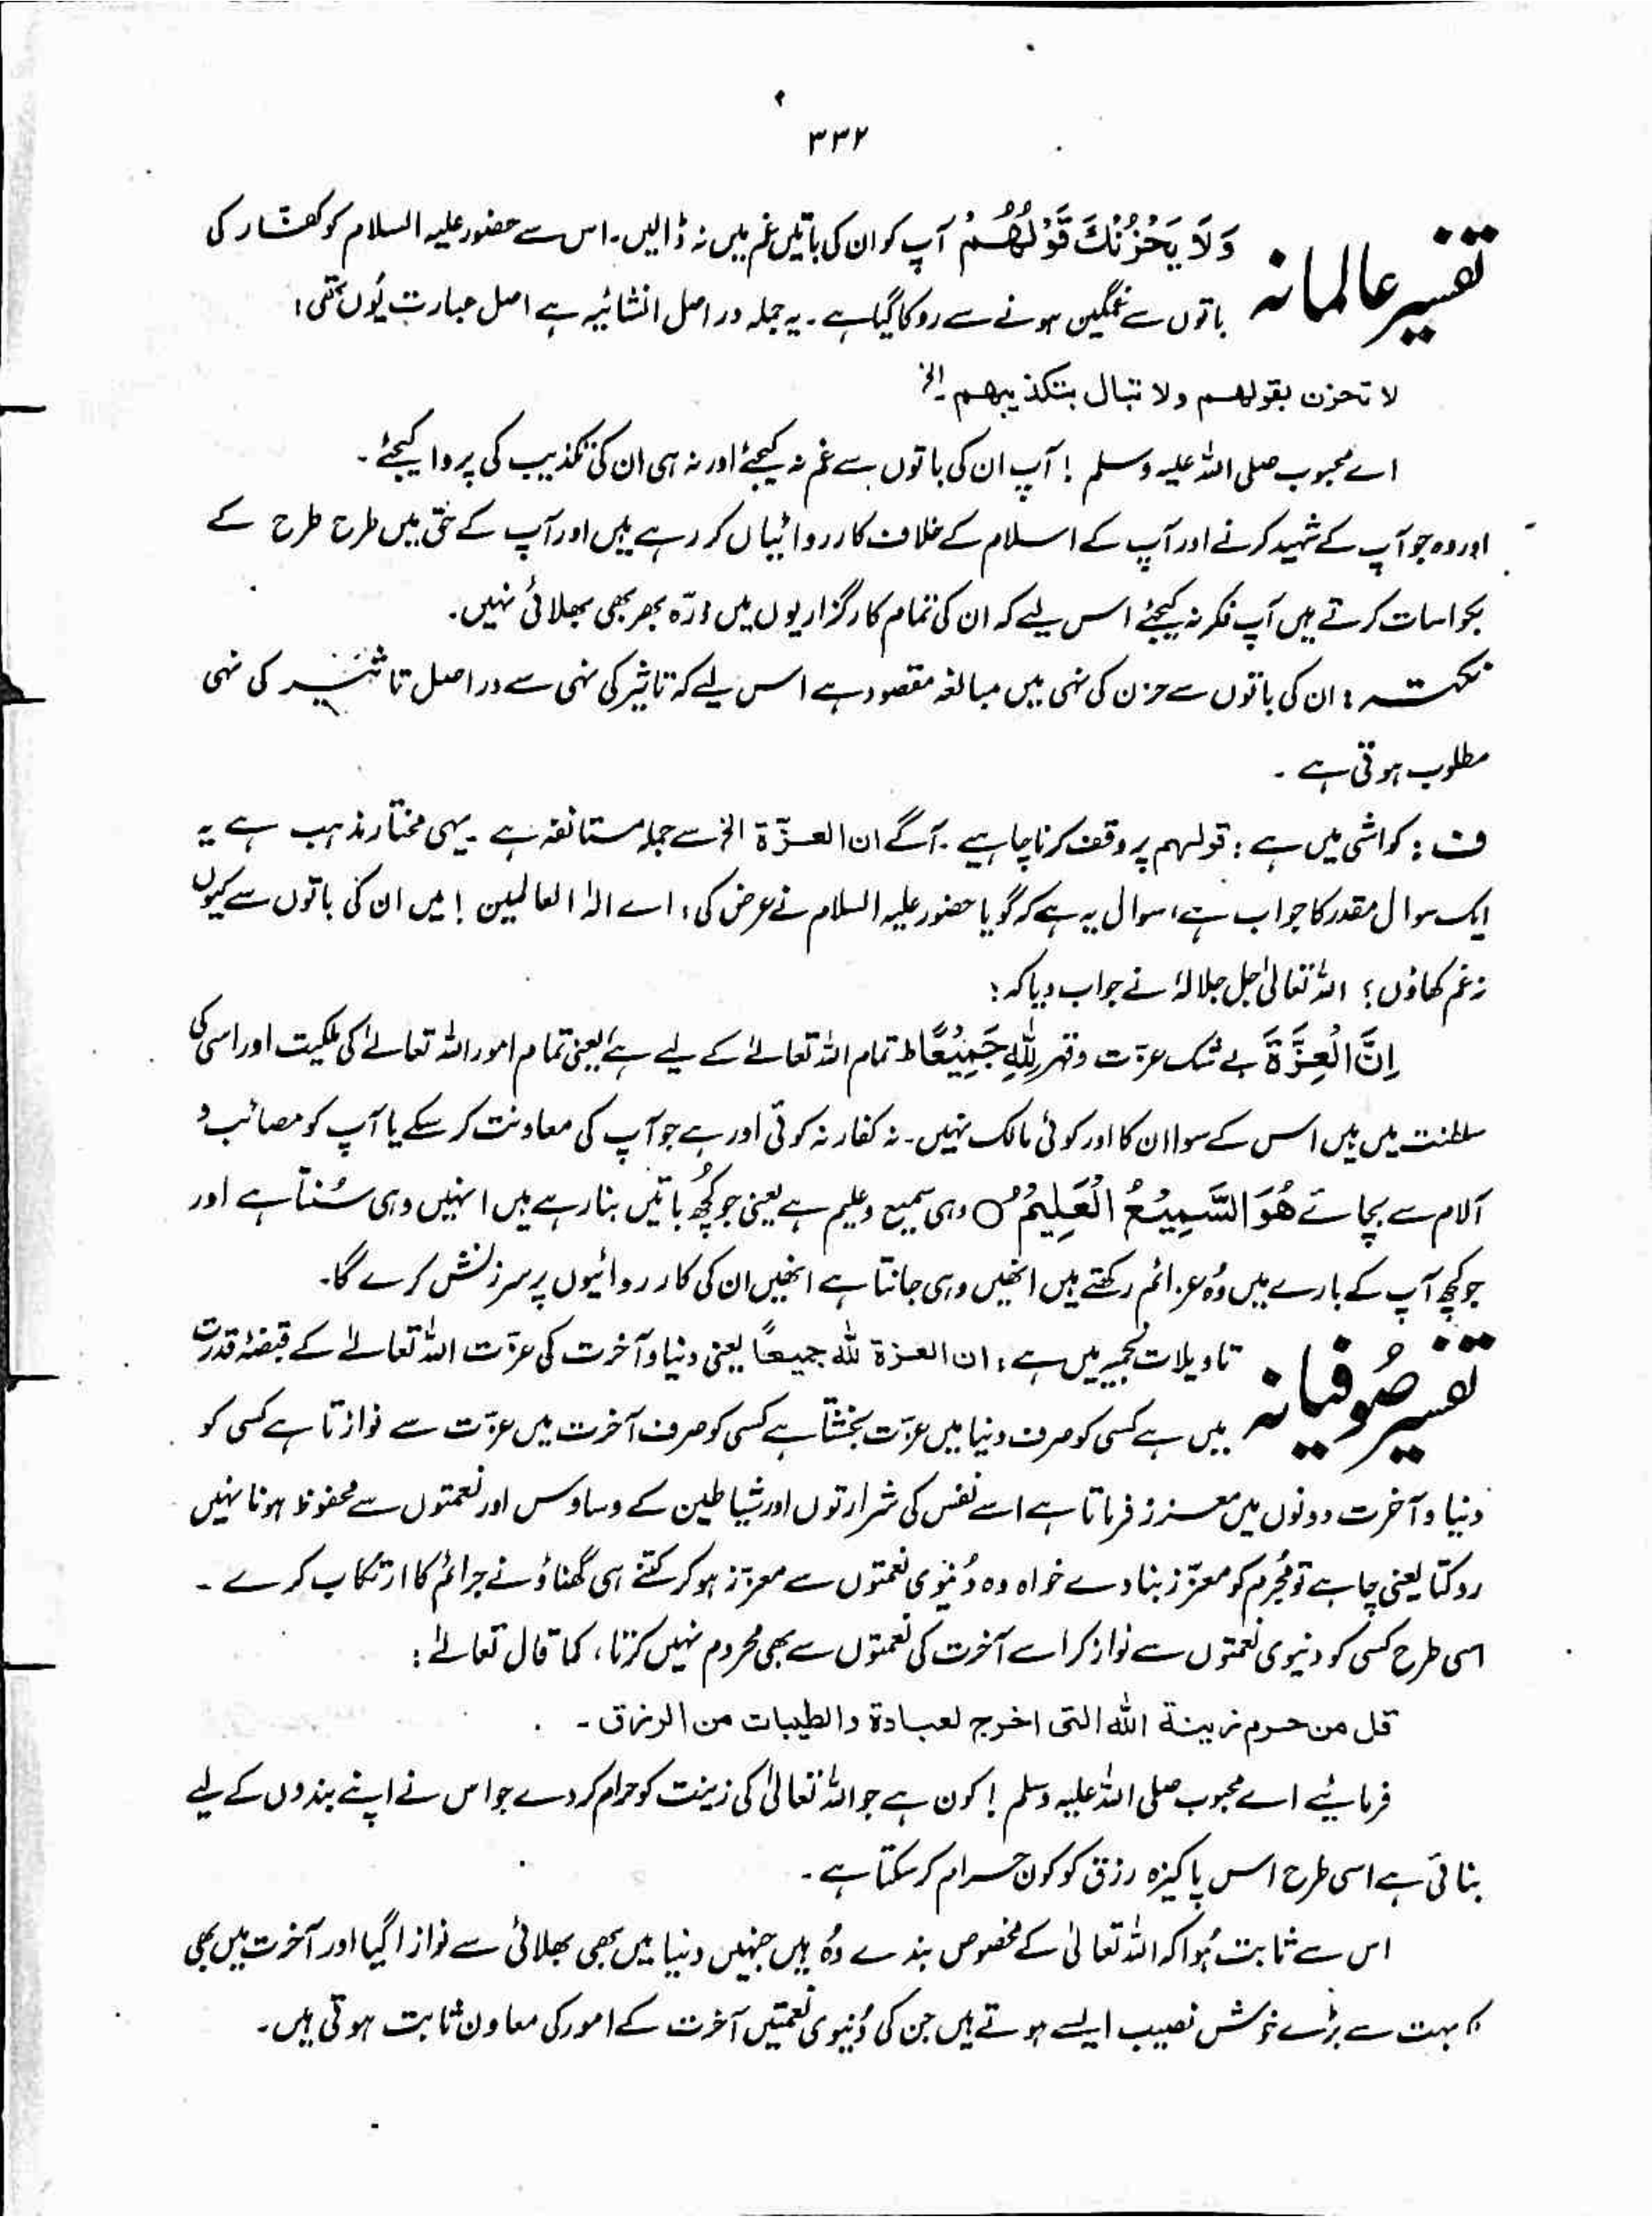 ۳۳۲
تفسیر عالمانہ وَلَا يَحْزُنْكَ قَوْلُهُمْ آپ کو ان کی باتیں غم میں نہ ڈالیں۔ اس سے حضور علیہ السلام کو کفّار کی
باتوں سے غمگین ہونے سے روکا گیا ہے۔ یہ جملہ دراصل انشائیہ ہے اصل عبارت یُوں تھی:
لا تحزن بقولهم ولا تبال بتكذيبهم الخ
اے محبوب صلی اللہ علیہ وسلم! آپ ان کی باتوں سے غم نہ کیجئے اور نہ ہی ان کی تکذیب کی پروا کیجئے۔
اور وہ جو آپ کے شہید کرنے اور آپ کے اسلام کے خلاف کارروائیاں کر رہے ہیں اور آپ کے حق میں طرح طرح کے
بکواسات کرتے ہیں آپ فکر نہ کیجئے اس لیے کہ ان کی تمام کارگزاریوں میں ذرّہ بھر بھی بھلائی نہیں۔
نکتہ: ان کی باتوں سے حزن کی نہی میں مبالغہ مقصود ہے اس لیے کہ تاثیر کی نہی سے دراصل تاثیر کی نہی
مطلوب ہوتی ہے۔
ف: کواشی میں ہے: قولہم پر وقف کرنا چاہیے۔ آگے ان العزّة الخ سے جملہ مستانفہ ہے۔ یہی مختار مذہب ہے یہ
ایک سوال مقدر کا جواب ہے، سوال یہ ہے کہ گویا حضور علیہ السلام نے عرض کی: اے الٰہ العالمین! میں ان کی باتوں سے کیوں
نہ غم کھاؤں؟ اللہ تعالیٰ جل جلالہٗ نے جواب دیا کہ:
اِنَّ الْعِزَّةَ بے شک عزّت و قہر لِلّٰهِ جَمِيْعًا ط تمام اللہ تعالےٰ کے لیے ہے یعنی تمام امور اللہ تعالےٰ کی ملکیت اور اسی کی
سلطنت میں ہیں اس کے سوا ان کا اور کوئی مالک نہیں۔ نہ کفار نہ کوئی اور ہے جو آپ کی معاونت کر سکے یا آپ کو مصائب و
آلام سے بچائے هُوَ السَّمِيْعُ الْعَلِيْمُ ۝ وہی سمیع وعلیم ہے یعنی جو کُچھ باتیں بنا رہے ہیں انہیں وہی سُنتا ہے اور
جو کچھ آپ کے بارے میں وُہ عزائم رکھتے ہیں انھیں وہی جانتا ہے انھیں ان کی کارروائیوں پر سرزنش کرے گا۔
تفسیر صُوفیانہ تاویلات نجمیہ میں ہے: ان العزة لله جميعًا یعنی دنیا و آخرت کی عزّت اللہ تعالےٰ کے قبضۂ قدرت
میں ہے کسی کو صرف دنیا میں عزّت بخشتا ہے کسی کو صرف آخرت میں عزّت سے نوازتا ہے کسی کو
دنیا و آخرت دونوں میں معزز فرماتا ہے اسے نفس کی شرارتوں اور شیاطین کے وساوس اور نعمتوں سے محفوظ ہونا نہیں
روکتا یعنی چاہے تو مُجرم کو معزّز بنا دے خواہ وہ دُنیوی نعمتوں سے معزّز ہو کر کتنے ہی گھناؤنے جرائم کا ارتکاب کرے۔
اسی طرح کسی کو دنیوی نعمتوں سے نواز کر اسے آخرت کی نعمتوں سے بھی محروم نہیں کرتا، کما قال تعالےٰ:
قل من حرم زينة الله التى اخرج لعبادة والطيبات من الرزاق۔
فرمائیے اے محبوب صلی اللہ علیہ وسلم! کون ہے جو اللہ تعالیٰ کی زینت کو حرام کر دے جو اس نے اپنے بندوں کے لیے
بنائی ہے اسی طرح اس پاکیزہ رزق کو کون حرام کر سکتا ہے۔
اس سے ثابت ہُوا کہ اللہ تعالیٰ کے مخصوص بندے وُہ ہیں جنہیں دنیا میں بھی بھلائی سے نوازا گیا اور آخرت میں بھی
بہت سے بڑے خوش نصیب ایسے ہوتے ہیں جن کی دُنیوی نعمتیں آخرت کے امور کی معاون ثابت ہوتی ہیں۔